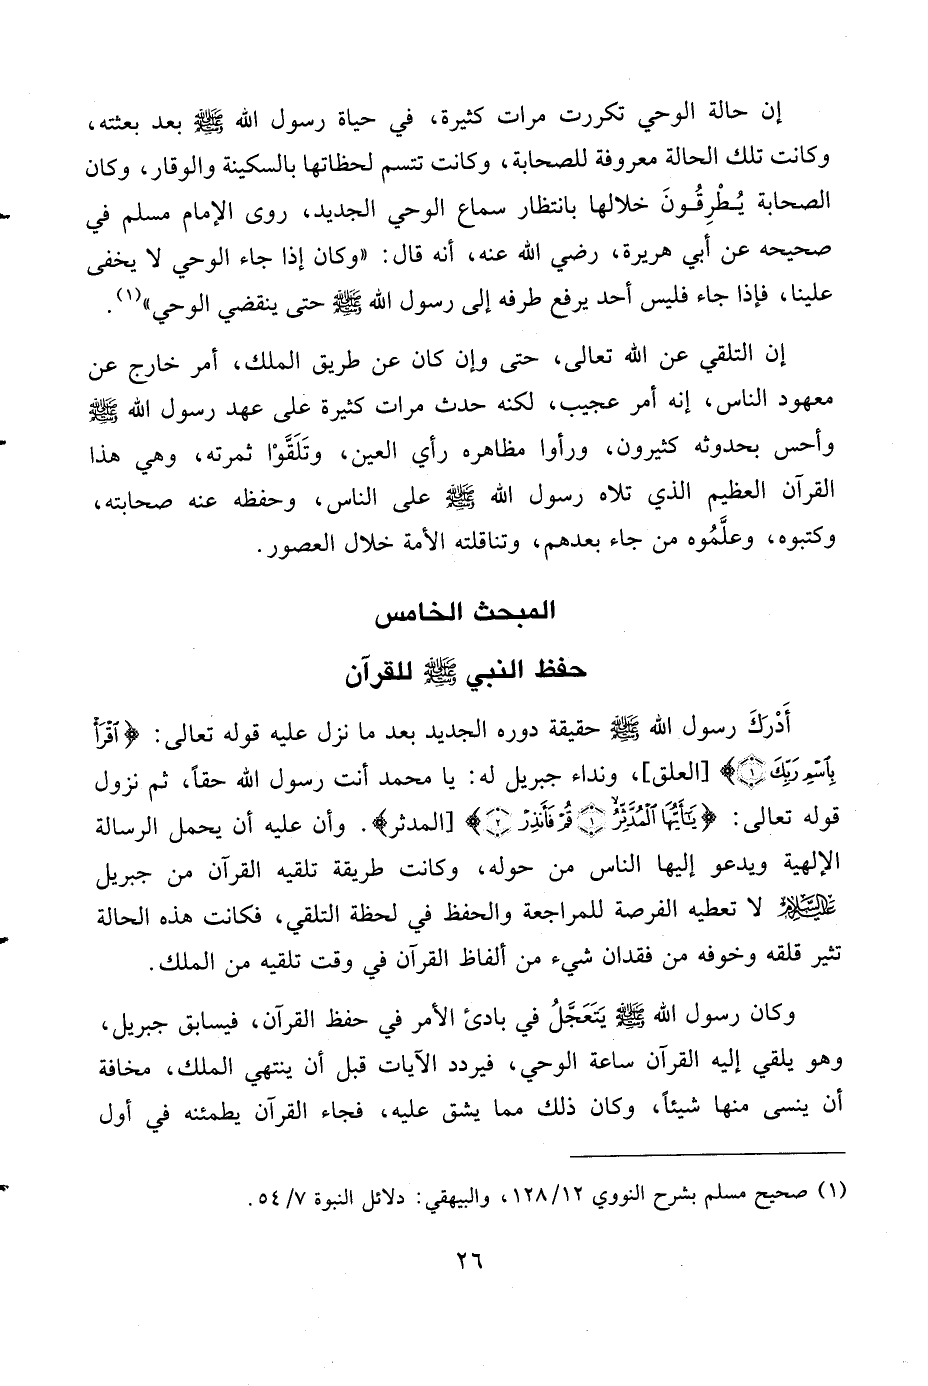 إن حالة الوحي تكررت مرات كثيرة، في حياة رسول الله ﷺ بعد بعثته،
وكانت تلك الحالة معروفة للصحابة، وكانت تتسم لحظاتها بالسكينة والوقار، وكان
الصحابة يُطْرِقُونَ خلالها بانتظار سماع الوحي الجديد، روى الإمام مسلم في
صحيحه عن أبي هريرة، رضي الله عنه، أنه قال: «وكان إذا جاء الوحي لا يخفى
علينا، فإذا جاء فليس أحد يرفع طرفه إلى رسول الله ﷺ حتى ينقضي الوحي»(١).
إن التلقي عن الله تعالى، حتى وإن كان عن طريق الملك، أمر خارج عن
معهود الناس، إنه أمر عجيب، لكنه حدث مرات كثيرة على عهد رسول الله ﷺ
وأحس بحدوثه كثيرون، ورأوا مظاهره رأي العين، وتَلَقَّوْا ثمرته، وهي هذا
القرآن العظيم الذي تلاه رسول الله ﷺ على الناس، وحفظه عنه صحابته،
وكتبوه، وعلَّمُوه من جاء بعدهم، وتناقلته الأمة خلال العصور.
المبحث الخامس
حفظ النبي ﷺ للقرآن
أَدْرَكَ رسول الله ﷺ حقيقة دوره الجديد بعد ما نزل عليه قوله تعالى: ﴿ٱقْرَأْ
بِٱسْمِ رَبِّكَ ۝١﴾ [العلق]، ونداء جبريل له: يا محمد أنت رسول الله حقاً، ثم نزول
قوله تعالى: ﴿يَٰٓأَيُّهَا ٱلْمُدَّثِّرُ ۝١ قُمْ فَأَنذِرْ ۝٢﴾ [المدثر﴾. وأن عليه أن يحمل الرسالة
الإلهية ويدعو إليها الناس من حوله، وكانت طريقة تلقيه القرآن من جبريل
عليه السلام لا تعطيه الفرصة للمراجعة والحفظ في لحظة التلقي، فكانت هذه الحالة
تثير قلقه وخوفه من فقدان شيء من ألفاظ القرآن في وقت تلقيه من الملك.
وكان رسول الله ﷺ يَتَعَجَّلُ في بادئ الأمر في حفظ القرآن، فيسابق جبريل،
وهو يلقي إليه القرآن ساعة الوحي، فيردد الآيات قبل أن ينتهي الملك، مخافة
أن ينسى منها شيئاً، وكان ذلك مما يشق عليه، فجاء القرآن يطمئنه في أول
(١) صحيح مسلم بشرح النووي ١٢٨/١٢، والبيهقي: دلائل النبوة ٥٤/٧.
٢٦